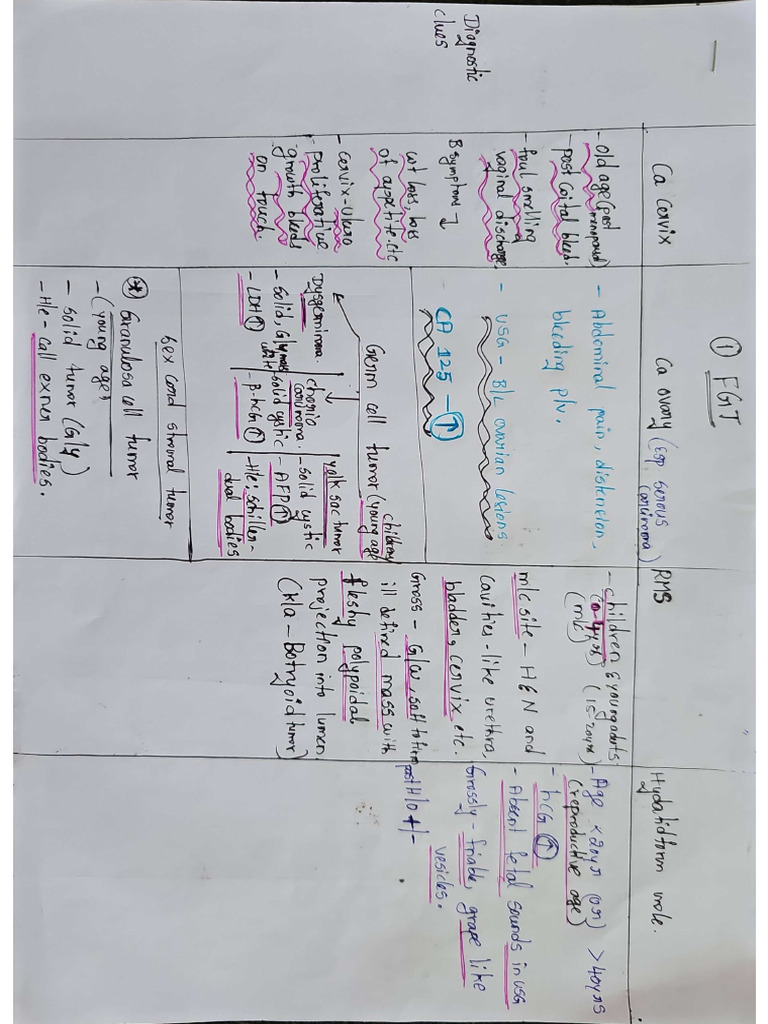 ① FGT
Diagnostic
clues
Ca cervix
- old age (post
menopausal)
- post coital bleed.
- foul smelling
vaginal discharge,
B symptoms →
wt loss, loss
of appetite. etc
- cervix - ulcero
proliferative
growth bleeds
on touch.
Ca ovary (esp serous
carcinoma)
- Abdominal pain, distension,
bleeding p/v.
- USG - B/L ovarian lesions.
CA 125 - ↑
Germ cell tumor (young age
children)
Dysgerminoma.
- Solid, G/y mass
- LDH ↑
chorio
carcinoma.
- solid cystic
- β-hCG ↑
yolk sac tumor
- solid cystic
- AFP ↑
- H/e: schiller-
dual bodies
sex cord stromal tumor
* Granulosa cell tumor
- (young age)
- solid tumor (G/y)
- H/e - call exner bodies.
RMS
- children & young adults
(0-4yrs) (15-20yrs)
(m/c)
m/c site - H&N and
cavities - like urethra,
bladder, cervix etc.
Gross - G/w, soft to firm
ill defined mass with
fleshy polypoidal
projection into lumen.
(k/a - Botryoid tumor)
Hydatidiform mole.
- Age <20yrs (or) >40yrs
(reproductive age)
- hCG ↑
- Absent fetal sounds in USG
Grossly - friable, grape like
vesicles.
post H/o +/-